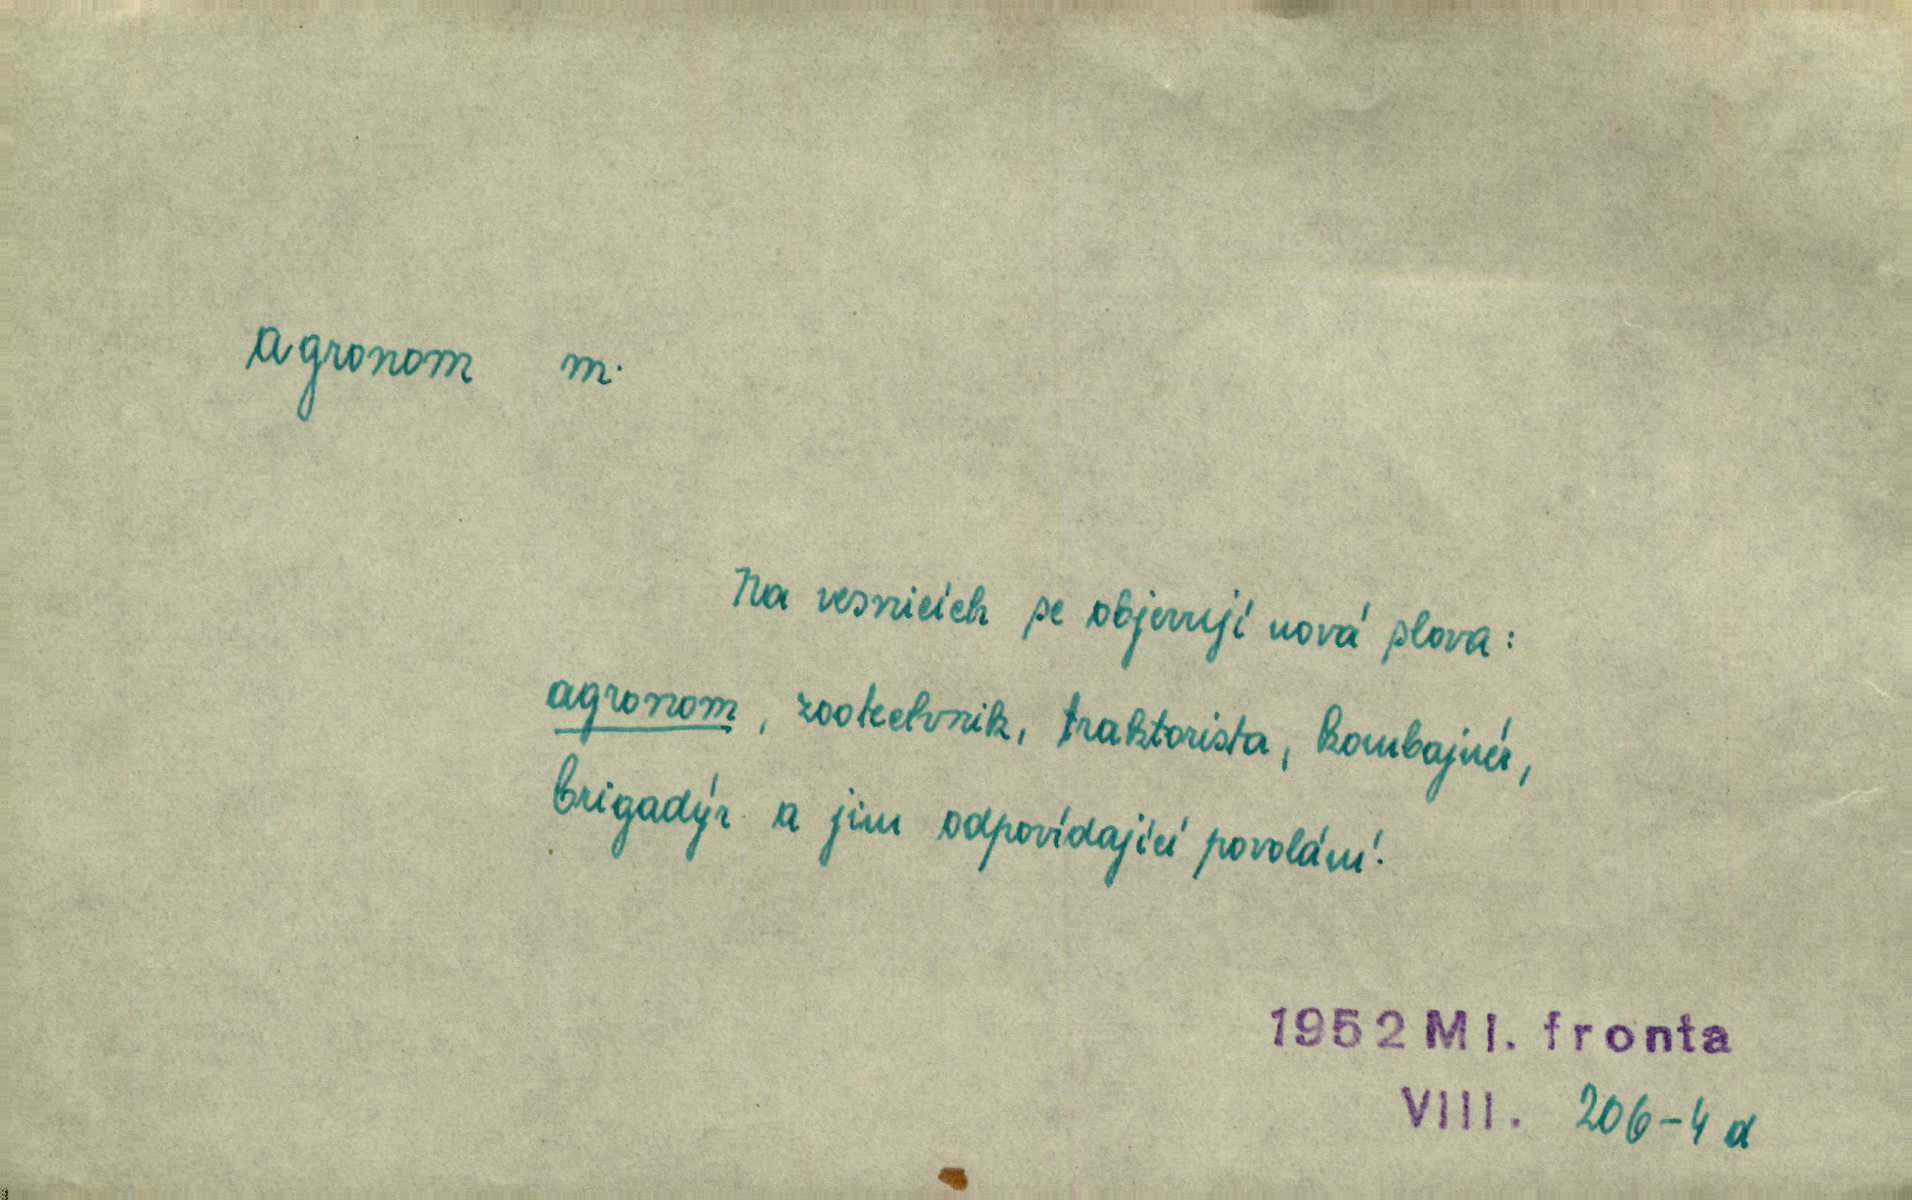 agronom m.
Na vesnicích se objevují nová slova:
agronom, zootechnik, traktorista, kombajnér,
brigadýr a jim odpovídající povolání.
1952 Ml. fronta
VIII. 206-4 d